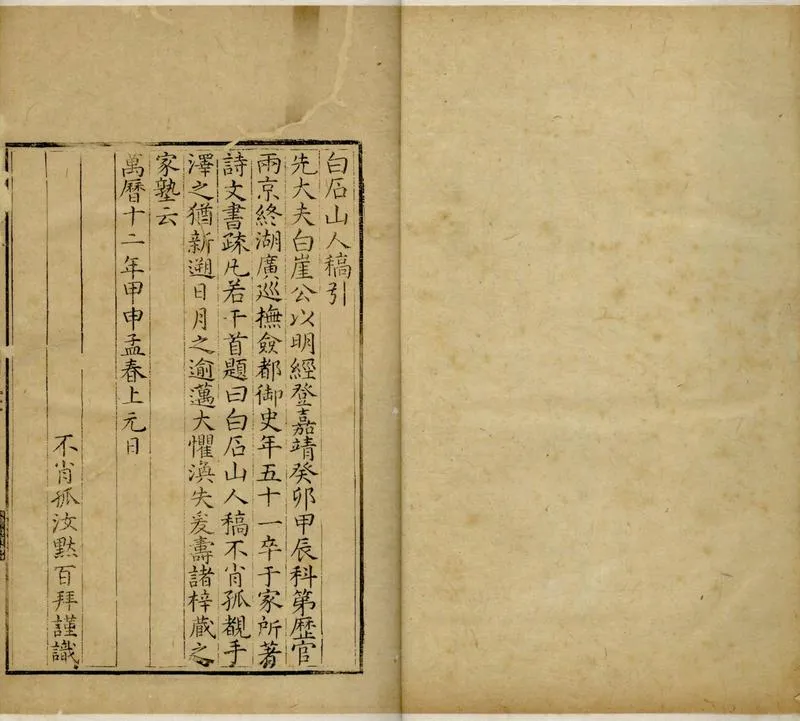 白石山人稿引
先大夫白崖公以明經登嘉靖癸卯甲辰科第歷官
兩京終湖廣巡撫僉都御史年五十一卒于家所著
詩文書疏凡若干首題曰白石山人稿不肖孤覩手
澤之猶新遡日月之逾邁大懼渙失爰壽諸梓藏之
家塾云
萬曆十二年甲申孟春上元日
不肖孤汝黙百拜謹識